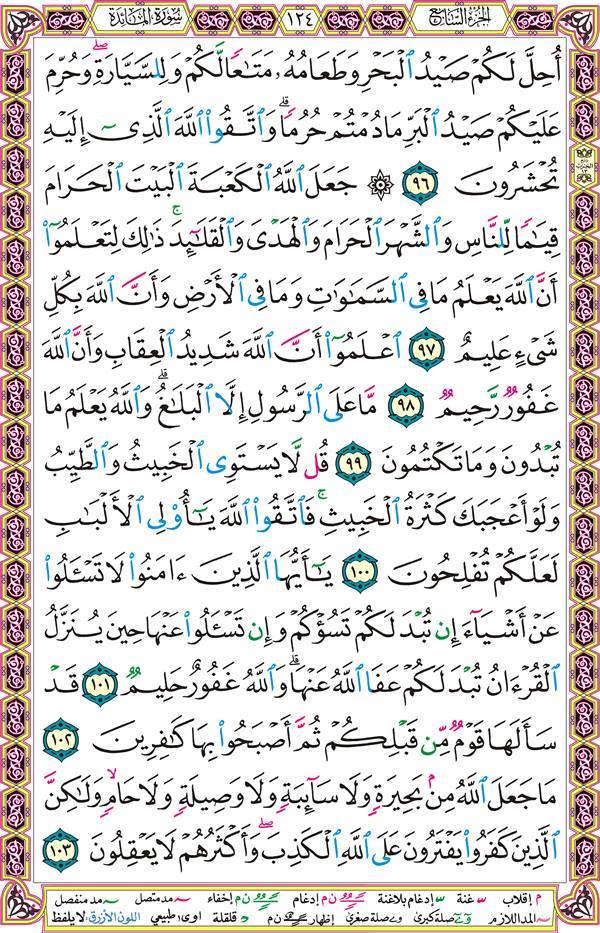 الجزء السابع ١٢٤ سورة المائدة
أُحِلَّ لَكُمْ صَيْدُ ٱلْبَحْرِ وَطَعَامُهُۥ مَتَـٰعًا لَّكُمْ وَلِلسَّيَّارَةِ ۖ وَحُرِّمَ
عَلَيْكُمْ صَيْدُ ٱلْبَرِّ مَا دُمْتُمْ حُرُمًا ۗ وَٱتَّقُوا۟ ٱللَّهَ ٱلَّذِىٓ إِلَيْهِ
تُحْشَرُونَ ٩٦ ۞ جَعَلَ ٱللَّهُ ٱلْكَعْبَةَ ٱلْبَيْتَ ٱلْحَرَامَ
قِيَـٰمًا لِّلنَّاسِ وَٱلشَّهْرَ ٱلْحَرَامَ وَٱلْهَدْىَ وَٱلْقَلَـٰٓئِدَ ۚ ذَٰلِكَ لِتَعْلَمُوٓا۟
أَنَّ ٱللَّهَ يَعْلَمُ مَا فِى ٱلسَّمَـٰوَٰتِ وَمَا فِى ٱلْأَرْضِ وَأَنَّ ٱللَّهَ بِكُلِّ
شَىْءٍ عَلِيمٌ ٩٧ ٱعْلَمُوٓا۟ أَنَّ ٱللَّهَ شَدِيدُ ٱلْعِقَابِ وَأَنَّ ٱللَّهَ
غَفُورٌ رَّحِيمٌ ٩٨ مَّا عَلَى ٱلرَّسُولِ إِلَّا ٱلْبَلَـٰغُ ۗ وَٱللَّهُ يَعْلَمُ مَا
تُبْدُونَ وَمَا تَكْتُمُونَ ٩٩ قُل لَّا يَسْتَوِى ٱلْخَبِيثُ وَٱلطَّيِّبُ
وَلَوْ أَعْجَبَكَ كَثْرَةُ ٱلْخَبِيثِ ۚ فَٱتَّقُوا۟ ٱللَّهَ يَـٰٓأُو۟لِى ٱلْأَلْبَـٰبِ
لَعَلَّكُمْ تُفْلِحُونَ ١٠٠ يَـٰٓأَيُّهَا ٱلَّذِينَ ءَامَنُوا۟ لَا تَسْـَٔلُوا۟
عَنْ أَشْيَآءَ إِن تُبْدَ لَكُمْ تَسُؤْكُمْ وَإِن تَسْـَٔلُوا۟ عَنْهَا حِينَ يُنَزَّلُ
ٱلْقُرْءَانُ تُبْدَ لَكُمْ عَفَا ٱللَّهُ عَنْهَا ۗ وَٱللَّهُ غَفُورٌ حَلِيمٌ ١٠١ قَدْ
سَأَلَهَا قَوْمٌ مِّن قَبْلِكُمْ ثُمَّ أَصْبَحُوا۟ بِهَا كَـٰفِرِينَ ١٠٢
مَا جَعَلَ ٱللَّهُ مِنۢ بَحِيرَةٍ وَلَا سَآئِبَةٍ وَلَا وَصِيلَةٍ وَلَا حَامٍ ۙ وَلَـٰكِنَّ
ٱلَّذِينَ كَفَرُوا۟ يَفْتَرُونَ عَلَى ٱللَّهِ ٱلْكَذِبَ ۖ وَأَكْثَرُهُمْ لَا يَعْقِلُونَ ١٠٣
م إقلاب غنة إدغام بلاغنة ن م إدغام ن م إخفاء مد متصل مد منفصل
المد اللازم صلة كبرى صلة صغرى إظهار ن م قلقلة اوى طبيعي اللون الأزرق: لا يلفظ